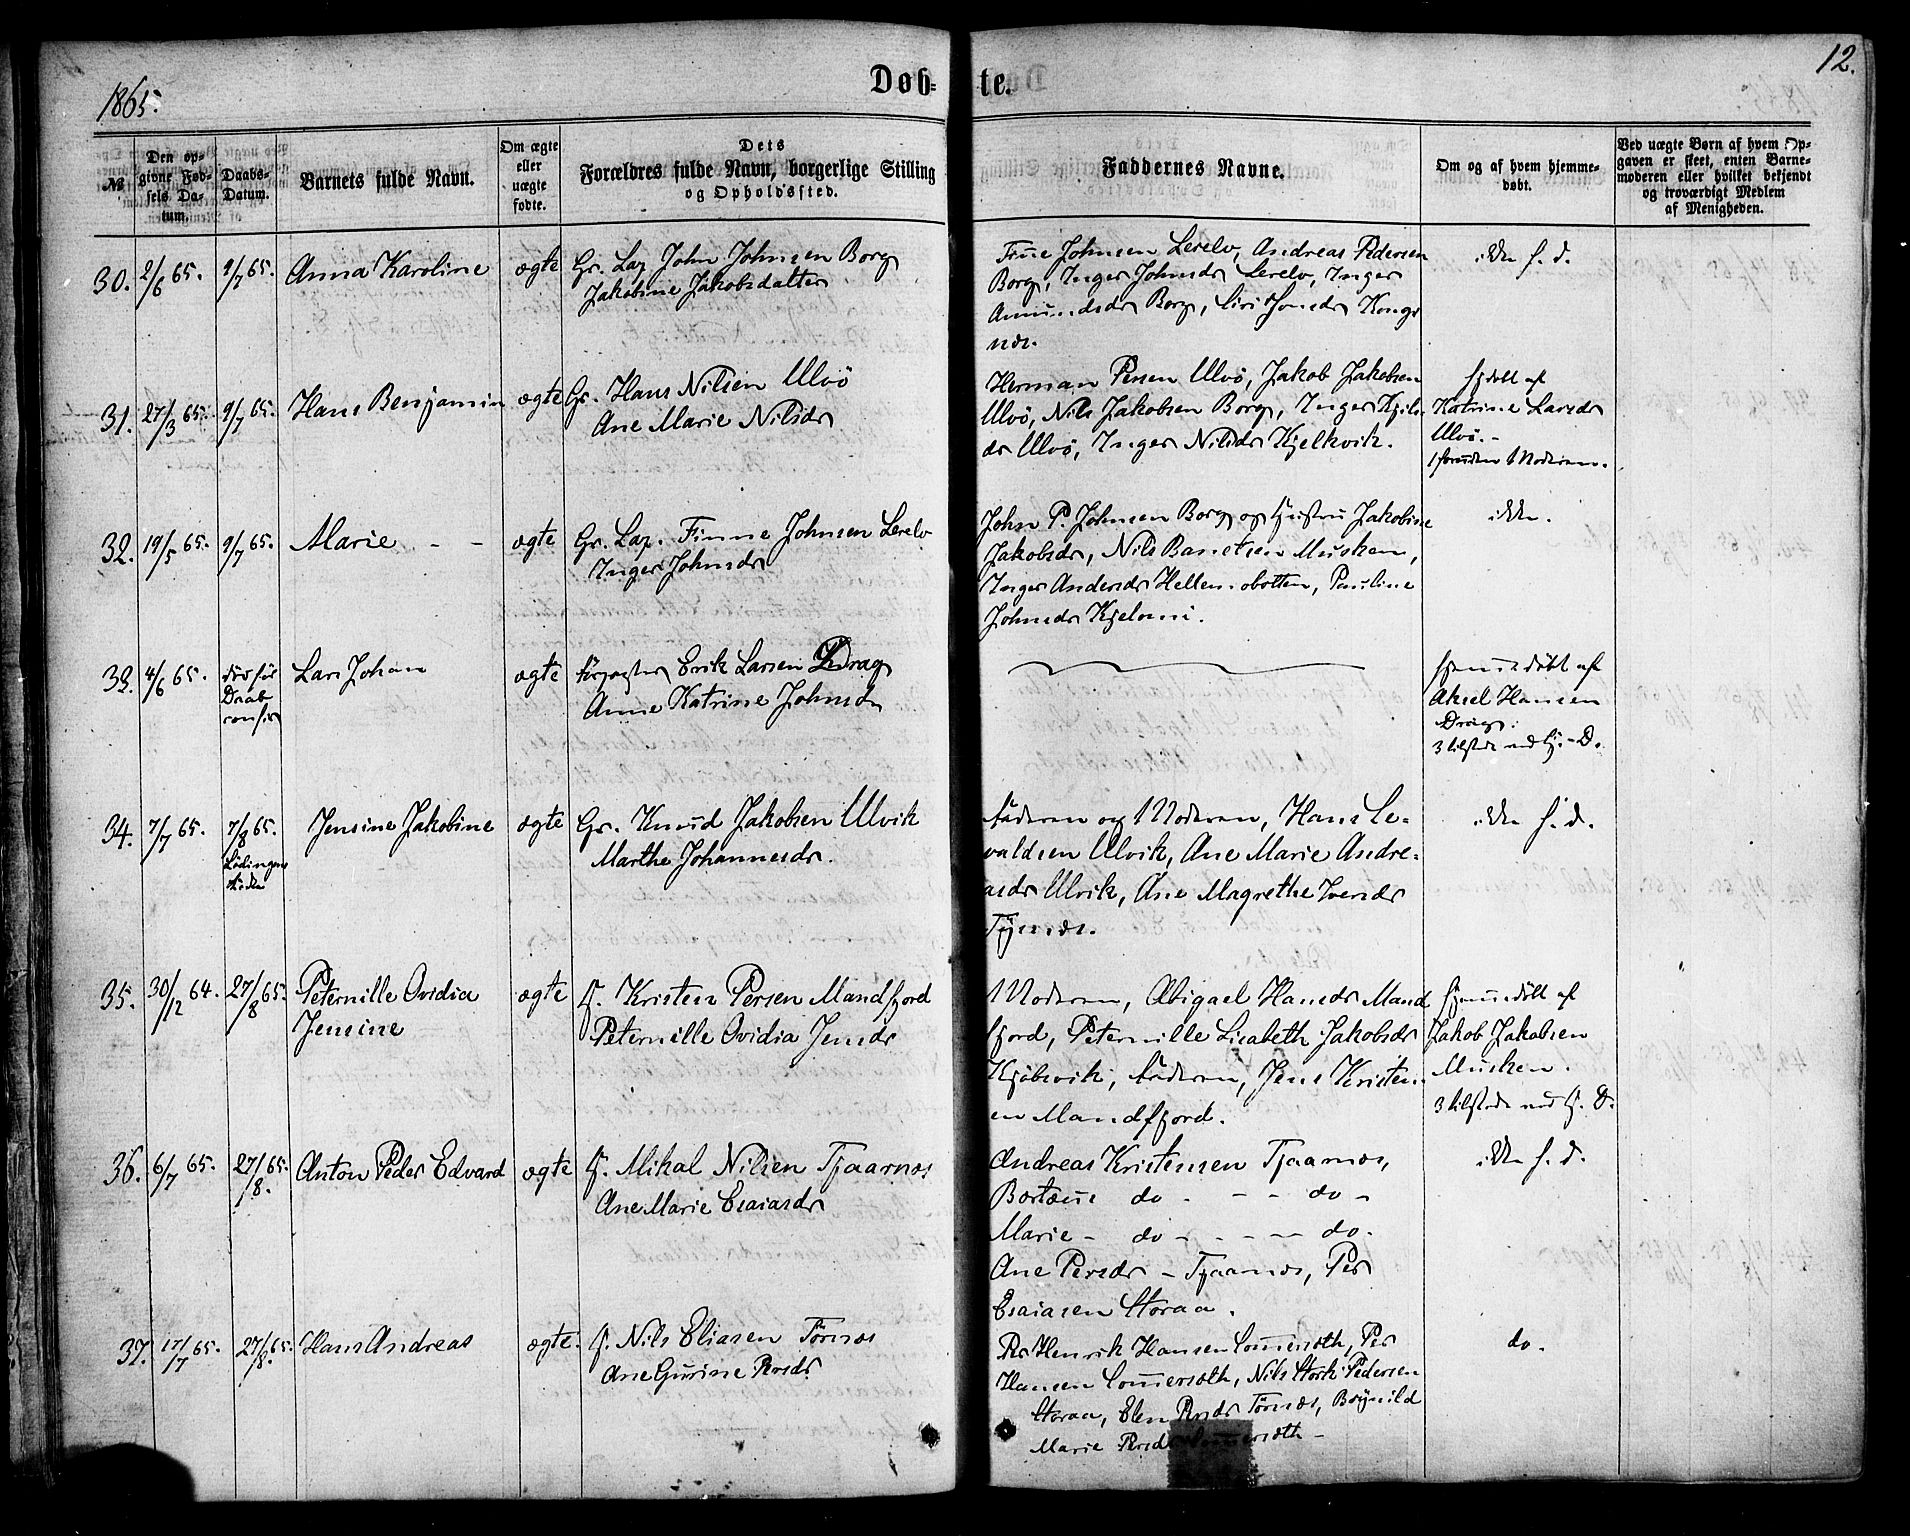 12.
1865.
Døb-
te.
№
Den op-
givne Fød-
sels Da-
tum.
Daabs-
Datum.
Barnets fulde Navn.
Om ægte
eller
uægte
fødte.
Dets
Forældres fulde Navn, borgerlige Stilling
og Opholdssted.
Faddernes Navne.
Om og af hvem hjemme-
døbt.
Ved uægte Børn af hvem Op-
gaven er skeet, enten Barne-
moderen eller hvilket bekjendt
og troværdigt Medlem
af Menigheden.
30. 2/6 65. 9/7 65. Anna Karoline ægte Gr. Lap John Johnsen Borg
Jakobine Jakobsdatter
Finne Johnsen Lerelv, Andreas Pedersen
Borg, Inger Johnsdr Lerelv, Inger
Amundsdr Borg, Siri Jonsdr Kongs
nes.
ikke h. d.
31. 27/3 65. 9/7 65. Hans Benjamin ægte Gr. Hans Nilsen Ulvø
Ane Marie Nilsdr
Herman Persen Ulvø, Jakob Jakobsen
Ulvø, Nils Jakobsen Borg, Inger Kjels
dr Ulvø, Inger Nilsdr Kjelkvik.
hjdøbt af
Katrine Larsdr
Ulvø.
1 foruden Moderen.
32. 19/5 65. 9/7 65. Marie - - ægte Gr. Lap. Finne Johnsen Lerelv
Inger Johnsdr
John P. Johnsen Borg og Hustru Jakobine
Jakobsdr, Nils Bantsen Musken,
Inger Andersdr Hellemobotten, Pauline
Johnsdr
ikke.
33. 4/6 65. død før
Daab
Lars Johan ægte Erik Larsen Drag
Anne Katrine Johnsdr
hjemmedøbt af
Aksel Hansen
Drag.
3 tilstede ved Hj.-D.
34. 7/7 65. 7/8 65.
Lødingen
Jensine Jakobine ægte Gr. Knud Jakobsen Ulvik
Marthe Johannesdr.
Faderen og Moderen, Hans Le-
valdsen Ulvik, Ane Marie Andre-
asdr Ulvik, Ane Magrethe Iversdr
Tysnes.
ikke h. d.
35. 30/12 64. 27/8 65. Peternille Ovidia
Jensine
ægte F. Kristen Persen Mandfjord
Peternille Ovidia Jensdr
Moderen, Abigael Hansdr Mand
fjord, Peternille Lisabeth Jakobsdr
Kjøbsvik, Faderen, Jens Kristen-
en Mandfjord.
hjemmedøbt af
Jakob Jakobsen
Musken.
3 tilstede ved Hj. D.
36. 6/7 65. 27/8 65. Anton Peder Edvard ægte F. Mikal Nilsen Tjaarnes
Ane Marie Esaiasdr
Andreas Kristensen Tjaarnes,
do - - - do -
Marie - do - - - do.
Ane Persdr - Tjaarnes, Per
Esaiasen Storaa.
ikke h. d.
37. 17/7 65. 27/8 65. Hans Andreas ægte. F. Nils Eliasen Tørnes
Ane Gurine Persdr
Per Henrik Hansen Sommersæth, Per
Hansen Sommersæth, Nils Stork Pedersen
Storaa, Elen Persdr Tørnes, Brynild
Marie Persdr Sommersæth -
do.